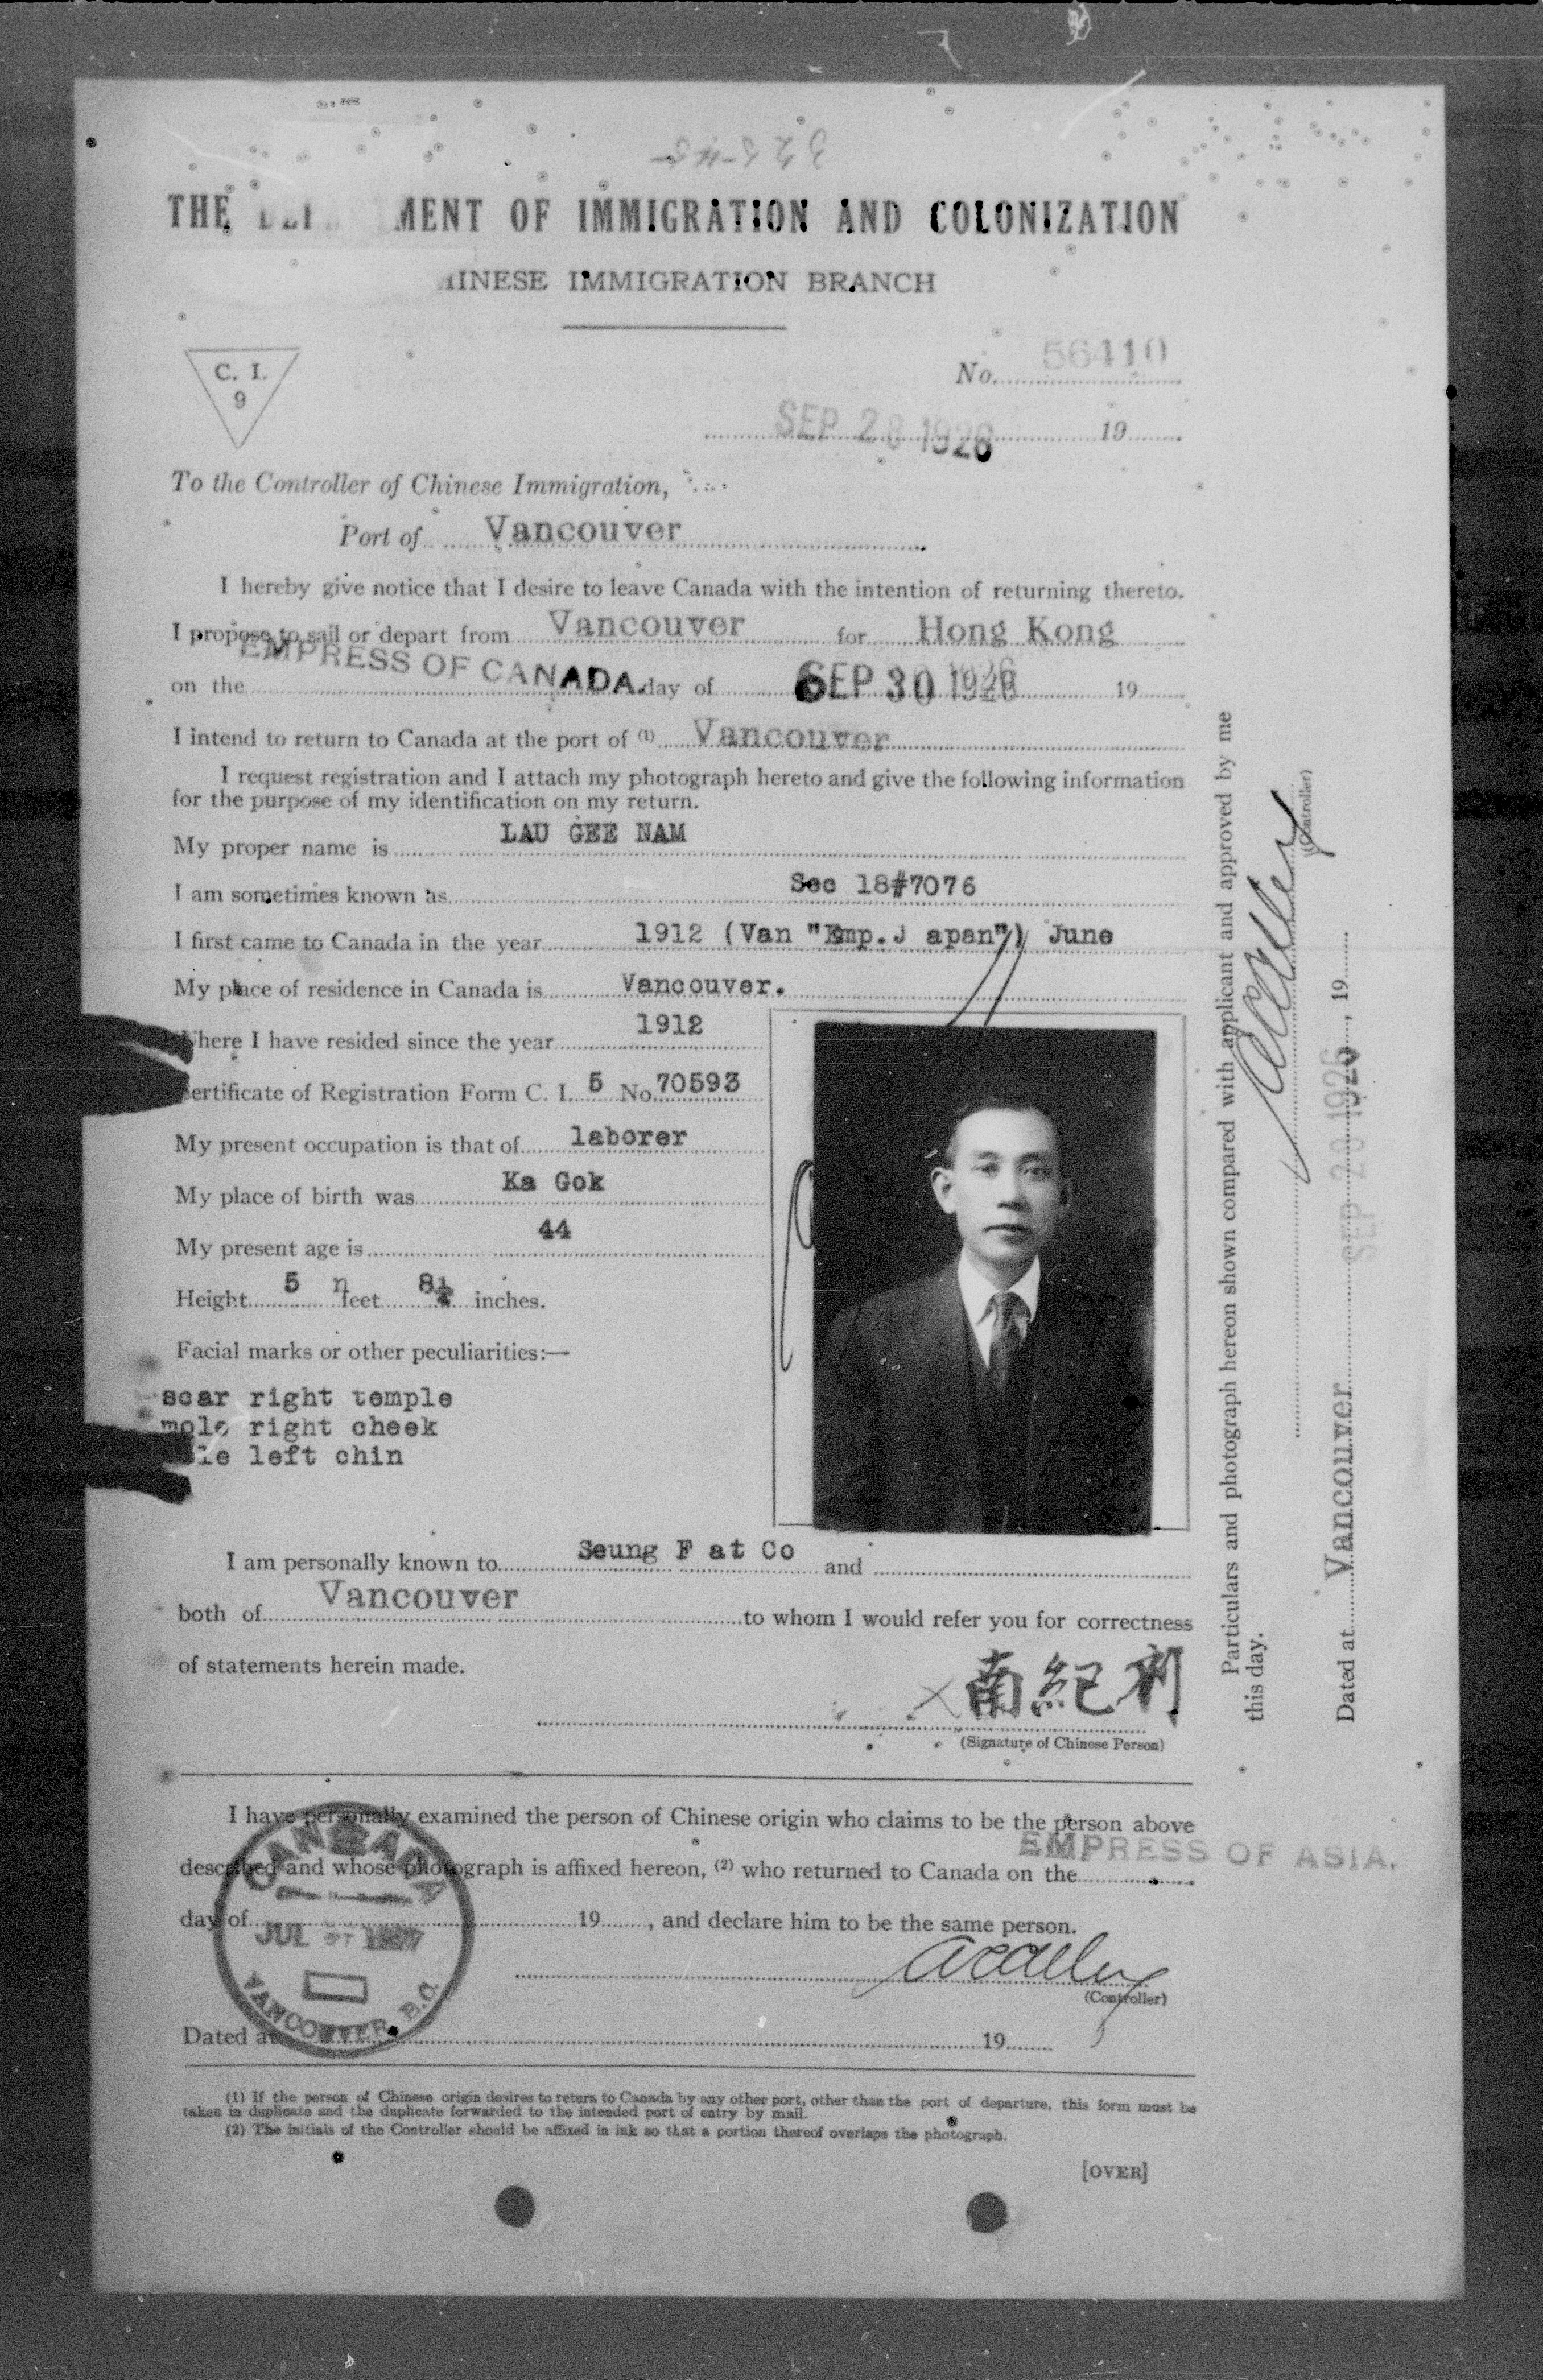 THE MENT OF IMMIGRATION AND COLONIZATION
CHINESE IMMIGRATION BRANCH
C. I.
9
No. 56410
SEP 28 1926 19
To the Controller of Chinese Immigration,
Port of Vancouver
I hereby give notice that I desire to leave Canada with the intention of returning thereto.
I propose to sail or depart from Vancouver for Hong Kong
EMPRESS OF CANADA.
on the day of SEP 30 1926 19
I intend to return to Canada at the port of (1) Vancouver
I request registration and I attach my photograph hereto and give the following information
for the purpose of my identification on my return.
My proper name is LAU GEE NAM
I am sometimes known as Sec 18#7076
I first came to Canada in the year 1912 (Van "Emp.J apan") June
My place of residence in Canada is Vancouver.
Where I have resided since the year 1912
Certificate of Registration Form C. I. 5 No. 70593
My present occupation is that of laborer
My place of birth was Ka Gok
My present age is 44
Height 5 feet 8¼ inches.
Facial marks or other peculiarities:—
scar right temple
mole right cheek
mole left chin
I am personally known to Seung F at Co and
both of Vancouver to whom I would refer you for correctness
of statements herein made.
× 南紀劉
(Signature of Chinese Person)
I have personally examined the person of Chinese origin who claims to be the person above
EMPRESS OF ASIA.
described and whose photograph is affixed hereon, (2) who returned to Canada on the
day of 19 , and declare him to be the same person.
(Controller)
Dated at 19
CANADA
JUL 1927
VANCOUVER, B.C.
(1) If the person of Chinese origin desires to return to Canada by any other port, other than the port of departure, this form must be
taken in duplicate and the duplicate forwarded to the intended port of entry by mail.
(2) The initials of the Controller should be affixed in ink so that a portion thereof overlaps the photograph.
[OVER]
Particulars and photograph hereon shown compared with applicant and approved by me
this day.
(Controller)
Dated at Vancouver SEP 28 1926, 19